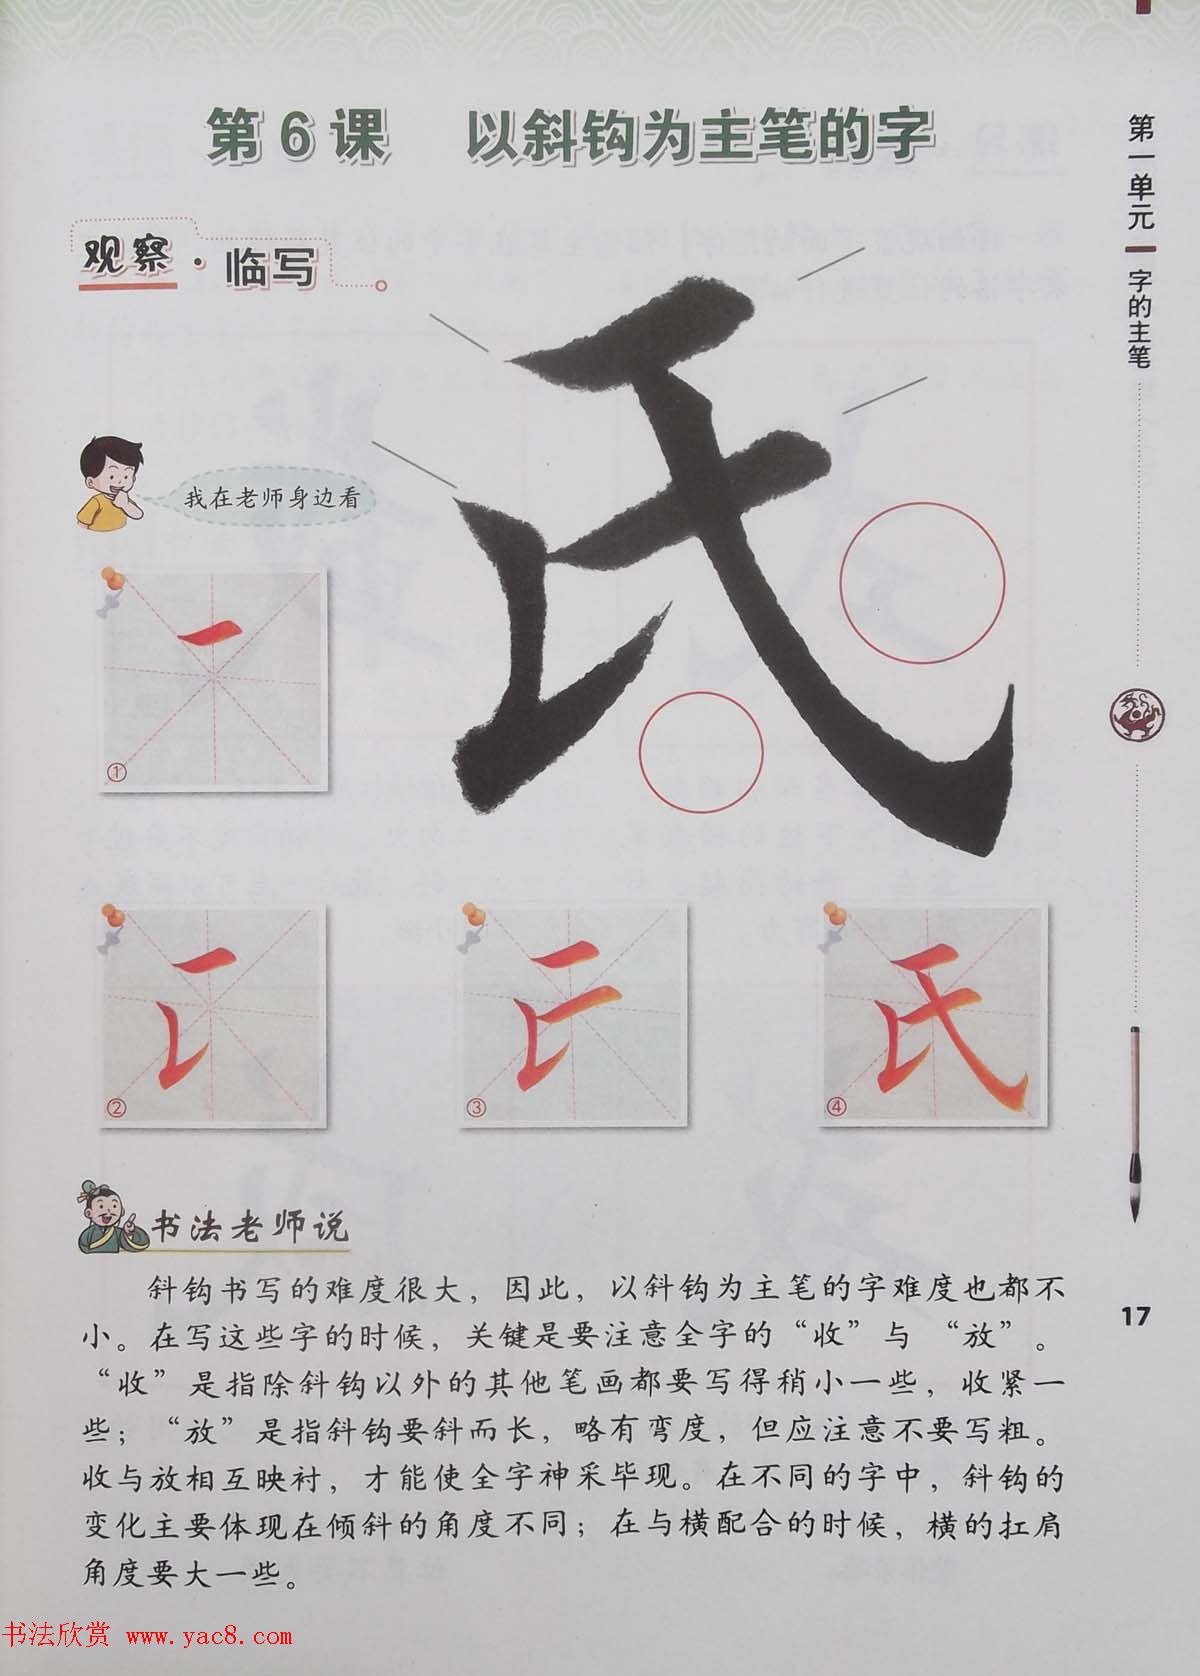 第6课 以斜钩为主笔的字
观察·临写
氏
我在老师身边看
①
②
③
④
书法老师说
斜钩书写的难度很大，因此，以斜钩为主笔的字难度也都不
小。在写这些字的时候，关键是要注意全字的“收”与“放”。
“收”是指除斜钩以外的其他笔画都要写得稍小一些，收紧一
些；“放”是指斜钩要斜而长，略有弯度，但应注意不要写粗。
收与放相互映衬，才能使全字神采毕现。在不同的字中，斜钩的
变化主要体现在倾斜的角度不同；在与横配合的时候，横的扛肩
角度要大一些。
第一单元 字的主笔
17
书法欣赏 www.yac8.com